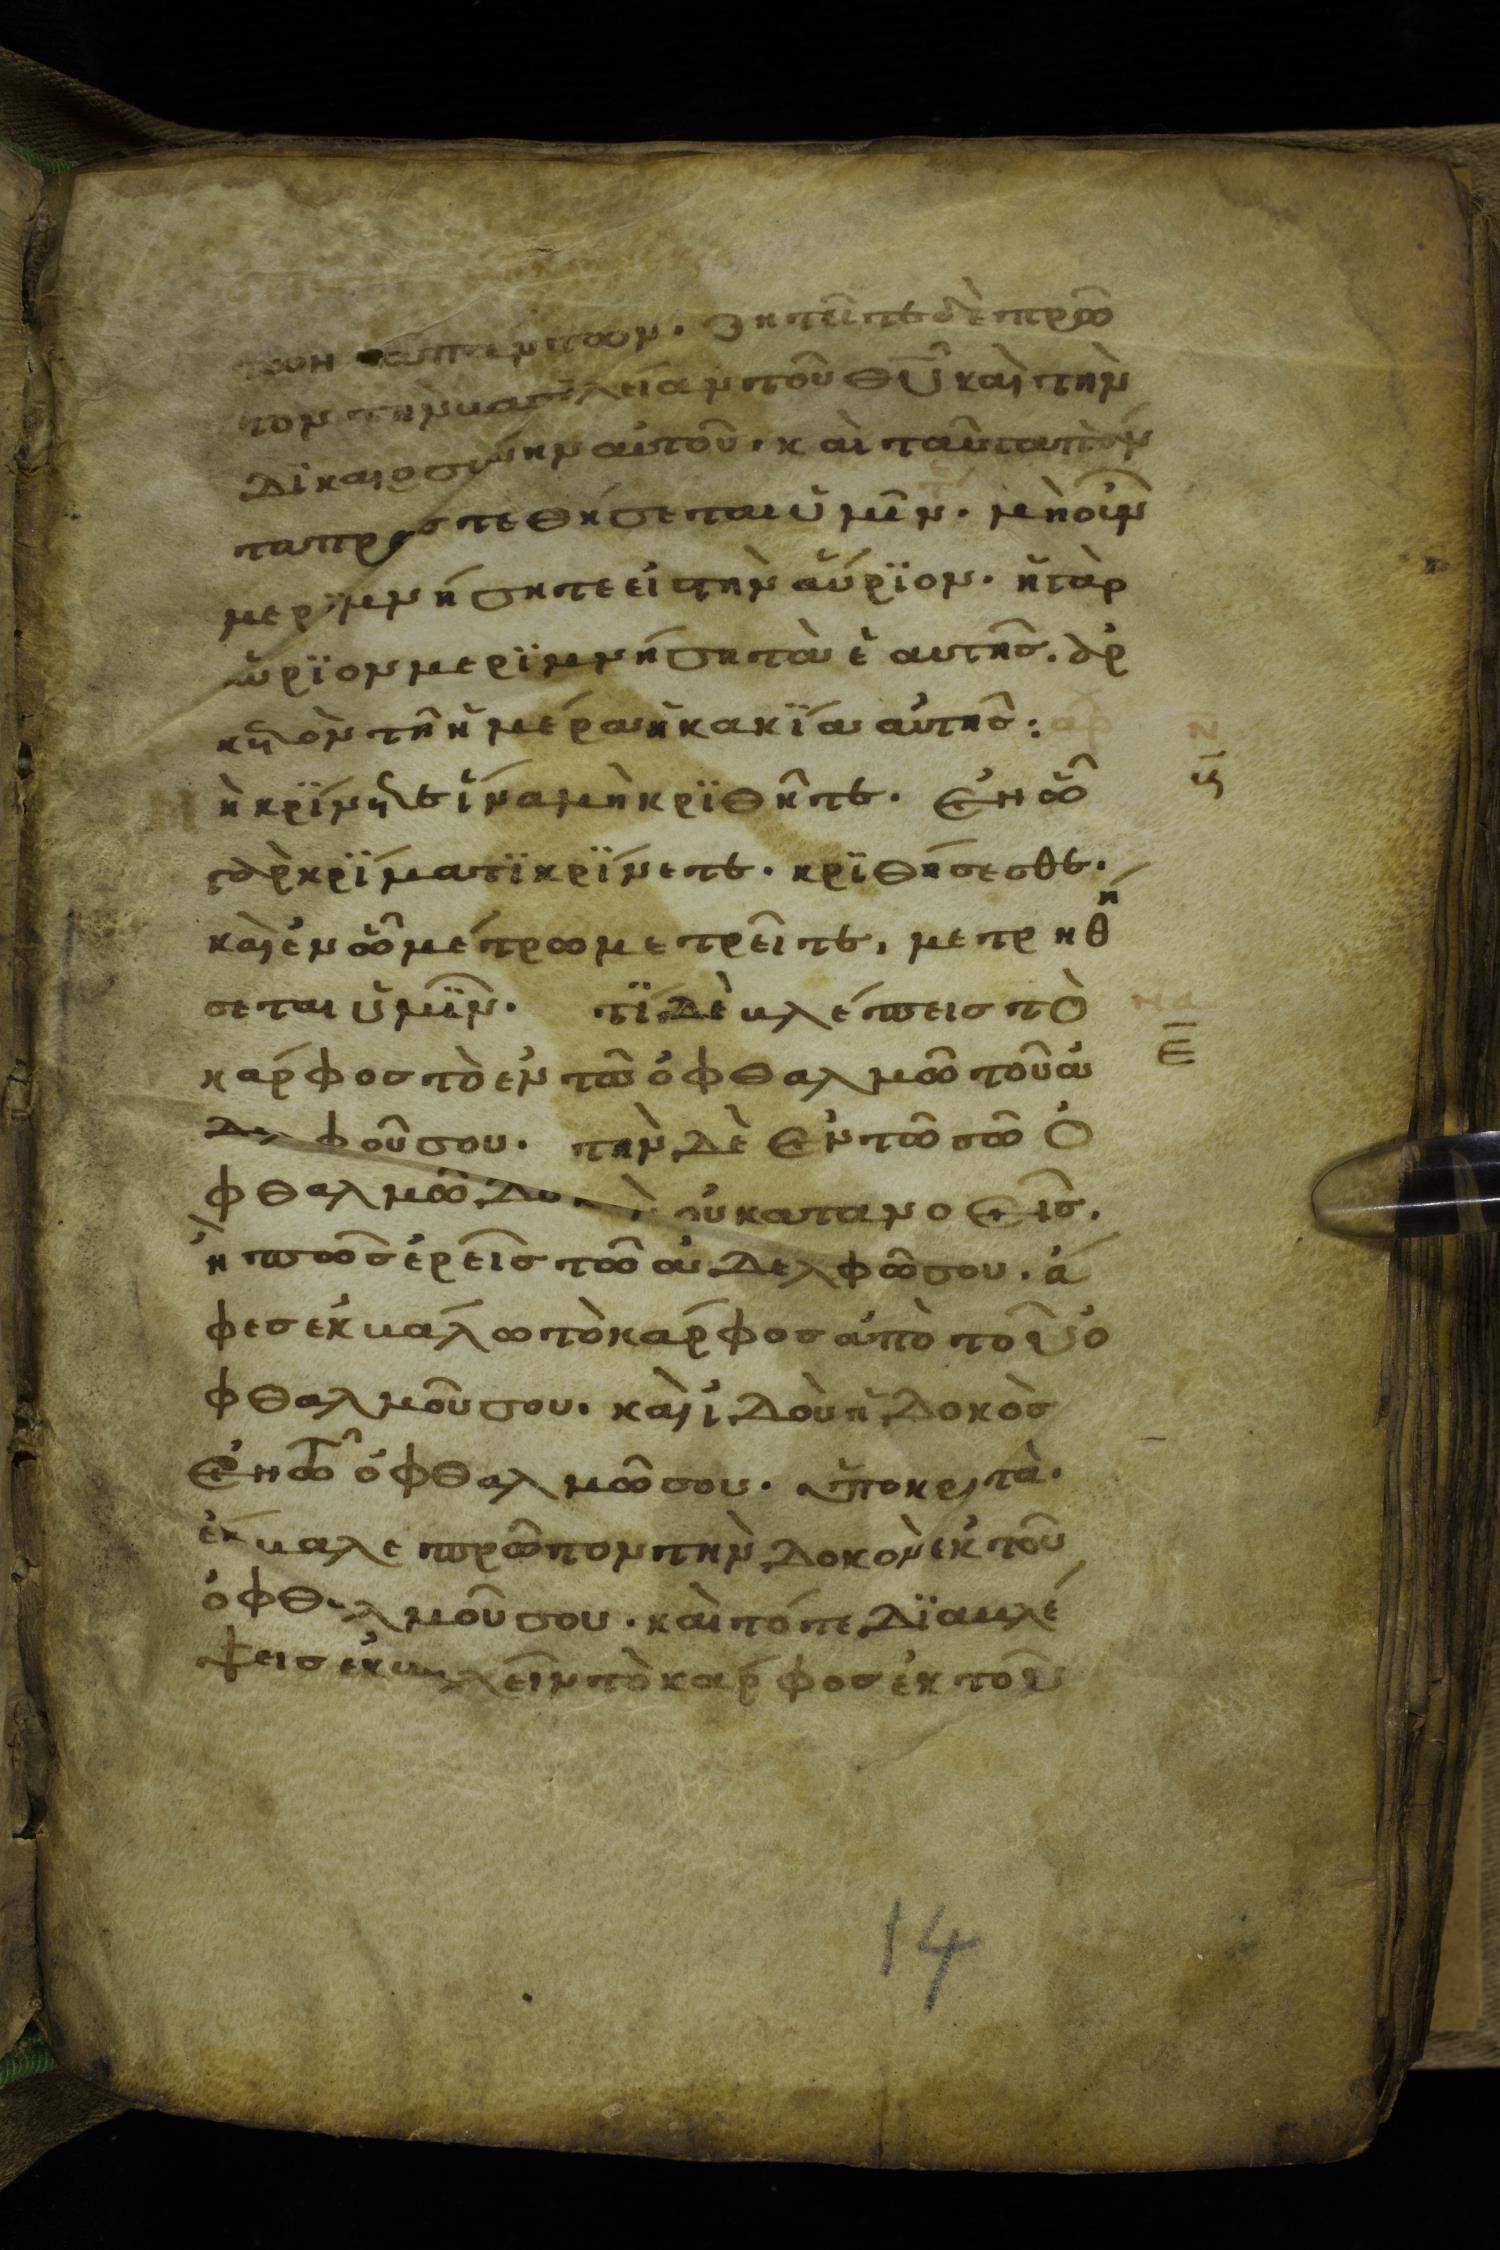 των ἁπάντων. ζητεῖτε δὲ πρῶ
τον τὴν βασιλείαν τοῦ θ̅υ̅ καὶ τὴν
δϊκαιοσύνην αὐτοῦ. καὶ ταῦτα πάν
τα προστεθήσεται ὑμῖν. μὴ οὖν
μερϊμνήσητε εἰ τὴν αὔρϊον. ἡ γὰρ
ὤρϊον μερϊμνήση τὰ ἑαυτῆς. ἀρ
κετὸν τῆ ἡμέρα ἡ κακΐα αὐτῆς:
Μὴ κρΐνετε ἵνα μὴ κρϊθῆτε. ἐν ᾧ
γὰρ κρΐματϊ κρΐνετε. κρϊθήσεσθε.
καὶ ἐν ᾧ μέτρω μετρεῖτε, μετρηθή
σεται ὑμῖν. τΐ δὲ βλέπεις τὸ
κάρφος τὸ ἐν τῶ ὀφθαλμῶ τοῦ ἀ
δελφοῦ σου. τὴν δὲ ἐν τῶ σῶ ὀ
φθαλμῶ δοκὸν οὐ κατανοεῖς.
ἢ πῶς ἐρεῖς τῶ ἀδελφῶ σου. ἄ
φες ἐκβάλω τὸ κάρφος ἀπὸ τοῦ ὀ
φθαλμοῦ σου. καὶ ἰδοὺ ἡ δοκὸς
ἐν τῶ ὀφθαλμῶ σου. ὑποκριτὰ.
ἔκβαλε πρῶτον τὴν δοκὸν ἐκ τοῦ
ὀφθαλμοῦ σου. καὶ τότε δϊαβλέ
ψεις ἐκβαλεῖν τὸ κάρφος ἐκ τοῦ
ν̅
ς̅
ε̅
14